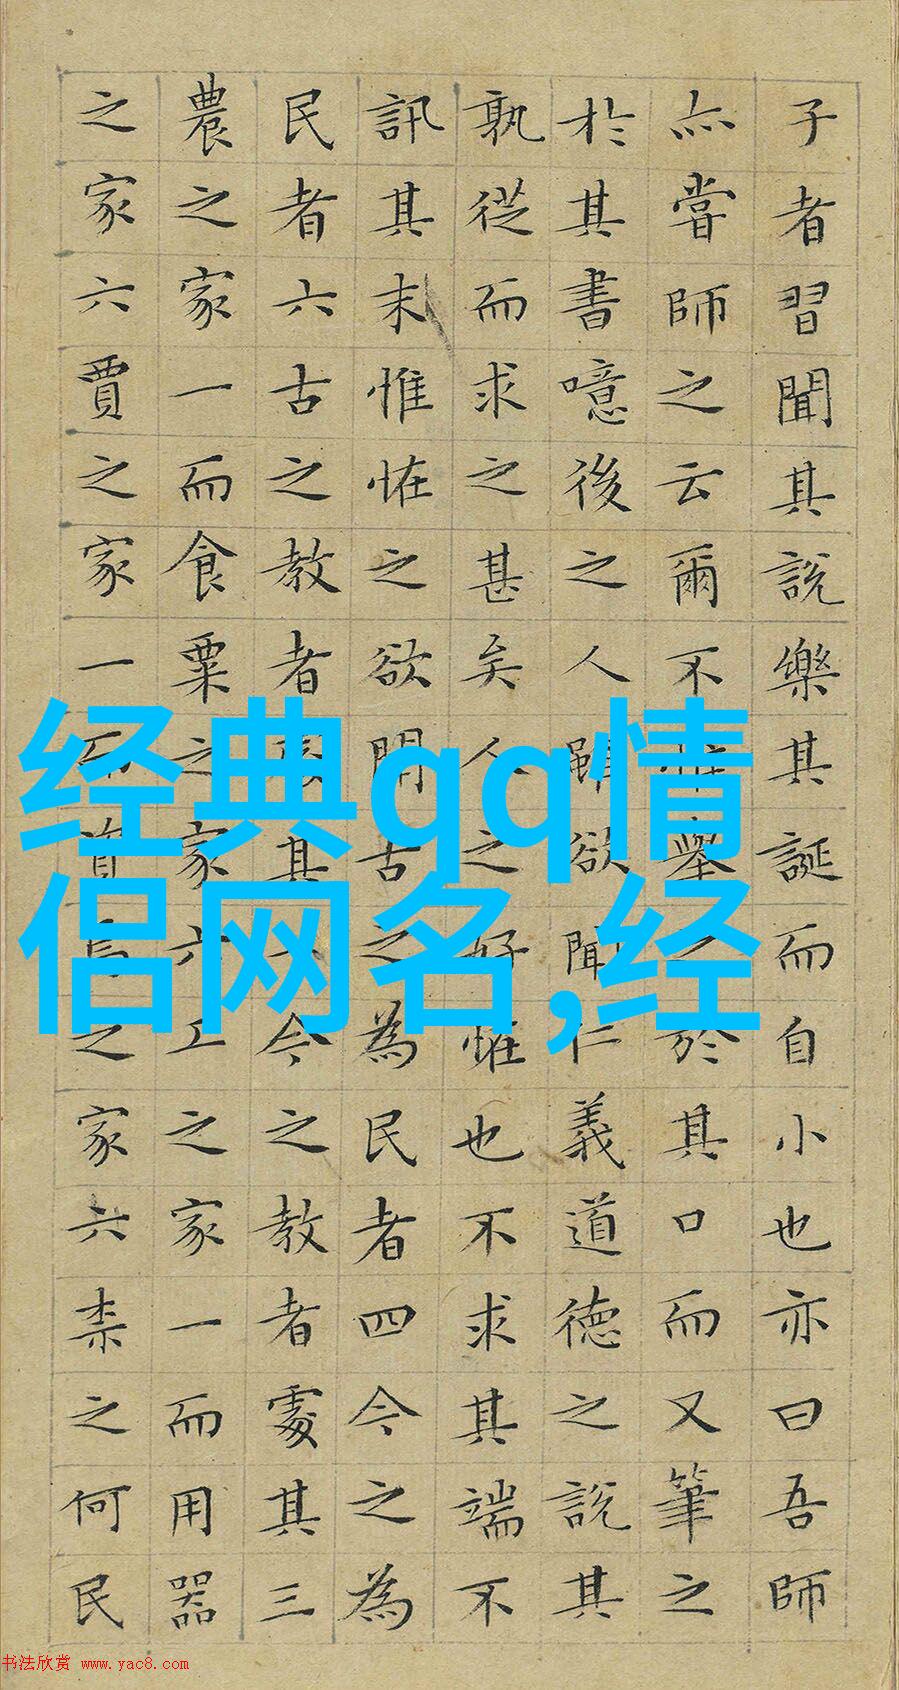 子者習聞其說樂其誕而自小也亦曰吾師
亦嘗師之云爾不惟舉之於其口而又筆之
於其書噫後之人雖欲聞仁義道德之說其
孰從而求之甚矣人之好恠也不求其端不
訊其末惟恠之欲聞古之為民者四今之為
民者六古之教者處其一今之教者處其三
農之家一而食粟之家六工之家一而用器
之家六賈之家一而資焉之家六柰之何民
经典qq情
侣网名,经
书法欣赏 www.yac8.com